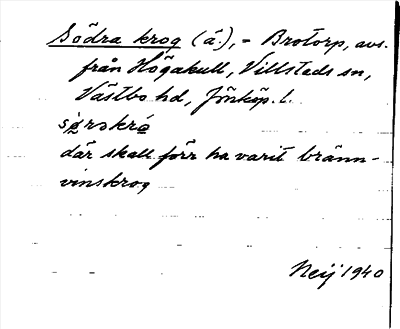 Södra krog (å.), - Brotorp, avs.
från Högakull, Villstads sn,
Västbo hd, Jönköp. l.
där skall förr ha varit bränn-
vinskrog
Neij 1940